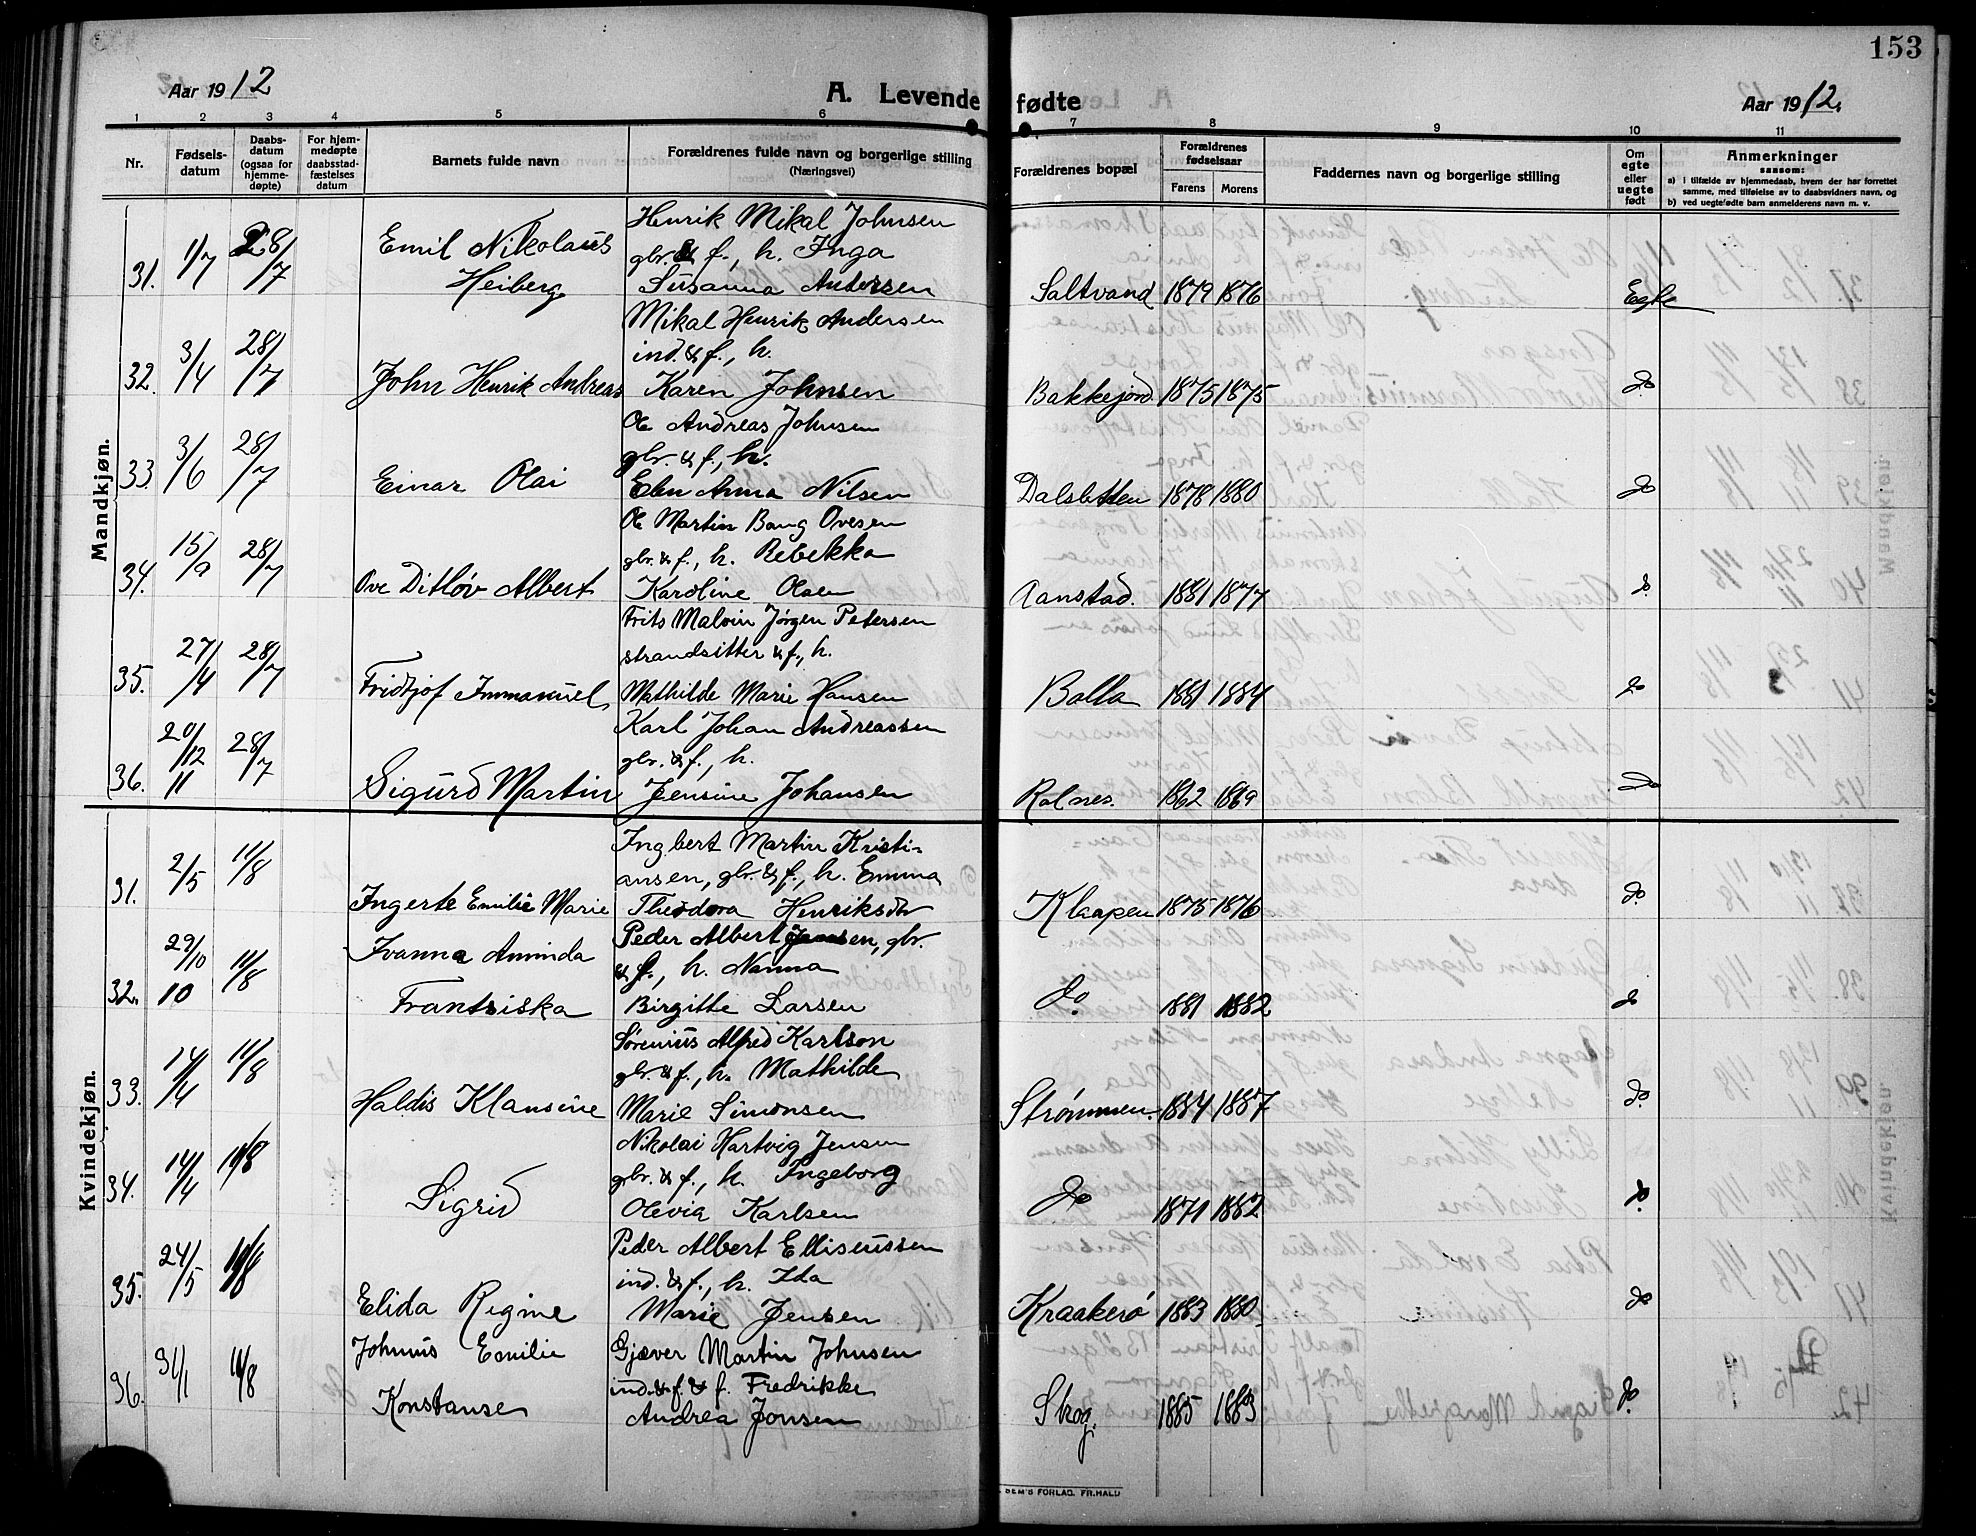 153
Aar 1912
A. Levende fødte
Aar 1912.
1 2 3 4 5 6 7 8 9 10 11
Nr.
Fødsels-
datum
Daabs-
datum
(ogsaa for
hjemme-
døpte)
For hjem-
medøpte
daabsstad-
fæstelses
datum
Barnets fulde navn
Forældrenes fulde navn og borgerlige stilling
(Næringsvei)
Forældrenes bopæl
Forældrenes
fødselsaar
Farens Morens
Faddernes navn og borgerlige stilling
Om
egte
eller
uegte
født
Anmerkninger
saasom:
a) i tilfælde av hjemmedaab, hvem der har forrettet
samme, med tilføielse av to daabsvidners navn, og
b) ved uegtefødte barn anmelderens navn m. v.
Mandkjøn.
Henrik Mikal Johnsen
31. 1/7 28/7 Emil Nikolaus gbr. & f., h. Inga
Heiberg Susanna Andersen Saltvand 1879 1876 Egte
Mikal Henrik Andersen
ind. & f., h.
32. 3/4 28/7 John Henrik Andreas Karen Johnsen Bakkejord 1875 1875 do
Ole Andreas Johnsen
gbr. & f., h.
33. 3/6 28/7 Einar Olai Elen Anna Nilsen Dalsletten 1878 1880 do
Ole Martin Bang Ovesen
gbr. & f., h. Rebekka
34. 15/9 28/7 Ove Ditløv Albert Karoline Olsen Aanstad. 1881 1877 do
Frits Malvin Jørgen Petersen
strandsitter & f., h.
35. 27/4 28/7 Fridtjof Immanuel Mathilde Marie Hansen Balla 1881 1884 do
Karl Johan Andreassen
gbr. & f., h.
36. 20/12 11 28/7 Sigurd Martin Jensine Johansen Rolnes. 1862 1869 do
Kvindekjøn.
Ingbert Martin Kristi-
ansen, gbr. & f., h. Emma
31. 2/5 11/8 Ingerte Emilie Marie Theodora Henriksdtr Klaapen 1875 1876 do
Peder Albert Jensen, gbr.
Ivanna Aminda & f., h. Nanna
32. 29/10 10 11/8 Frantsiska Birgitte Larsen do. 1881 1882 do
Sørenius Alfred Karlson
gbr. & f., h. Mathilde
33. 14/4 11/8 Haldis Klausine Marie Simonsen Strømmen. 1884 1887 do
Nikolai Hartvig Jensen
gbr. & f., h. Ingeborg
34. 14/4 11/8 Sigrid Olevia Karlsen do 1871 1882 do
Peder Albert Elliseussen
ind. & f., h. Ida
35. 24/5 11/8 Elida Regine Marie Jensen Kraakerø 1883 1880 do
Johnnis Emilie Gjæver Martin Johnsen
ind. & f. & f. Fredrikke
36. 31/1 11/8 Konstanse Andrea Jonsen Skog. 1885 1883 do
SEM'S FORLAG. FR.HALD